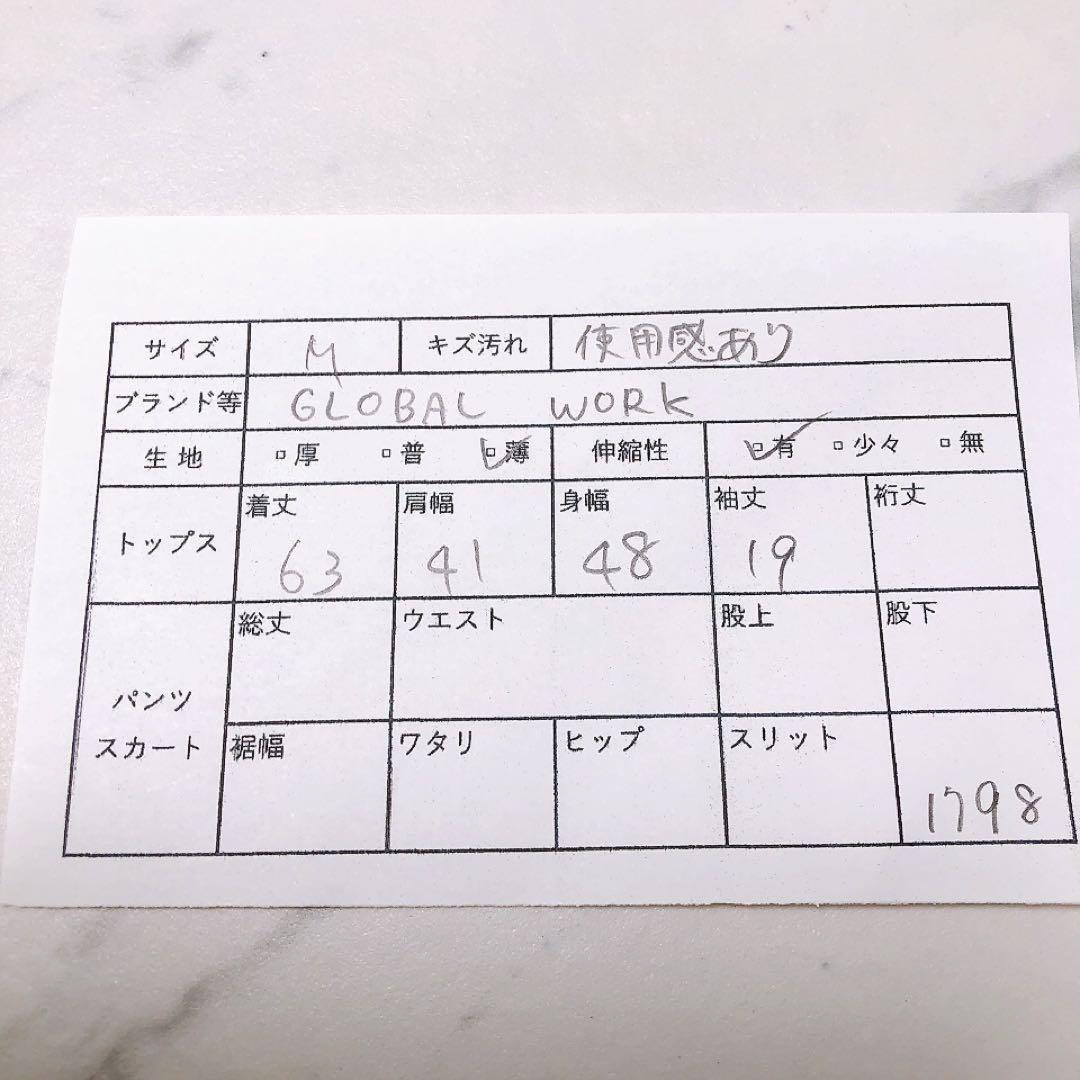 サイズ M キズ汚れ 使用感あり
ブランド等 GLOBAL WORK
生地 □厚 □普 ☑薄 伸縮性 ☑有 □少々 □無
トップス 着丈 肩幅 身幅 袖丈 裄丈
63 41 48 19
パンツ スカート 総丈 ウエスト 股上 股下
裾幅 ワタリ ヒップ スリット
1798